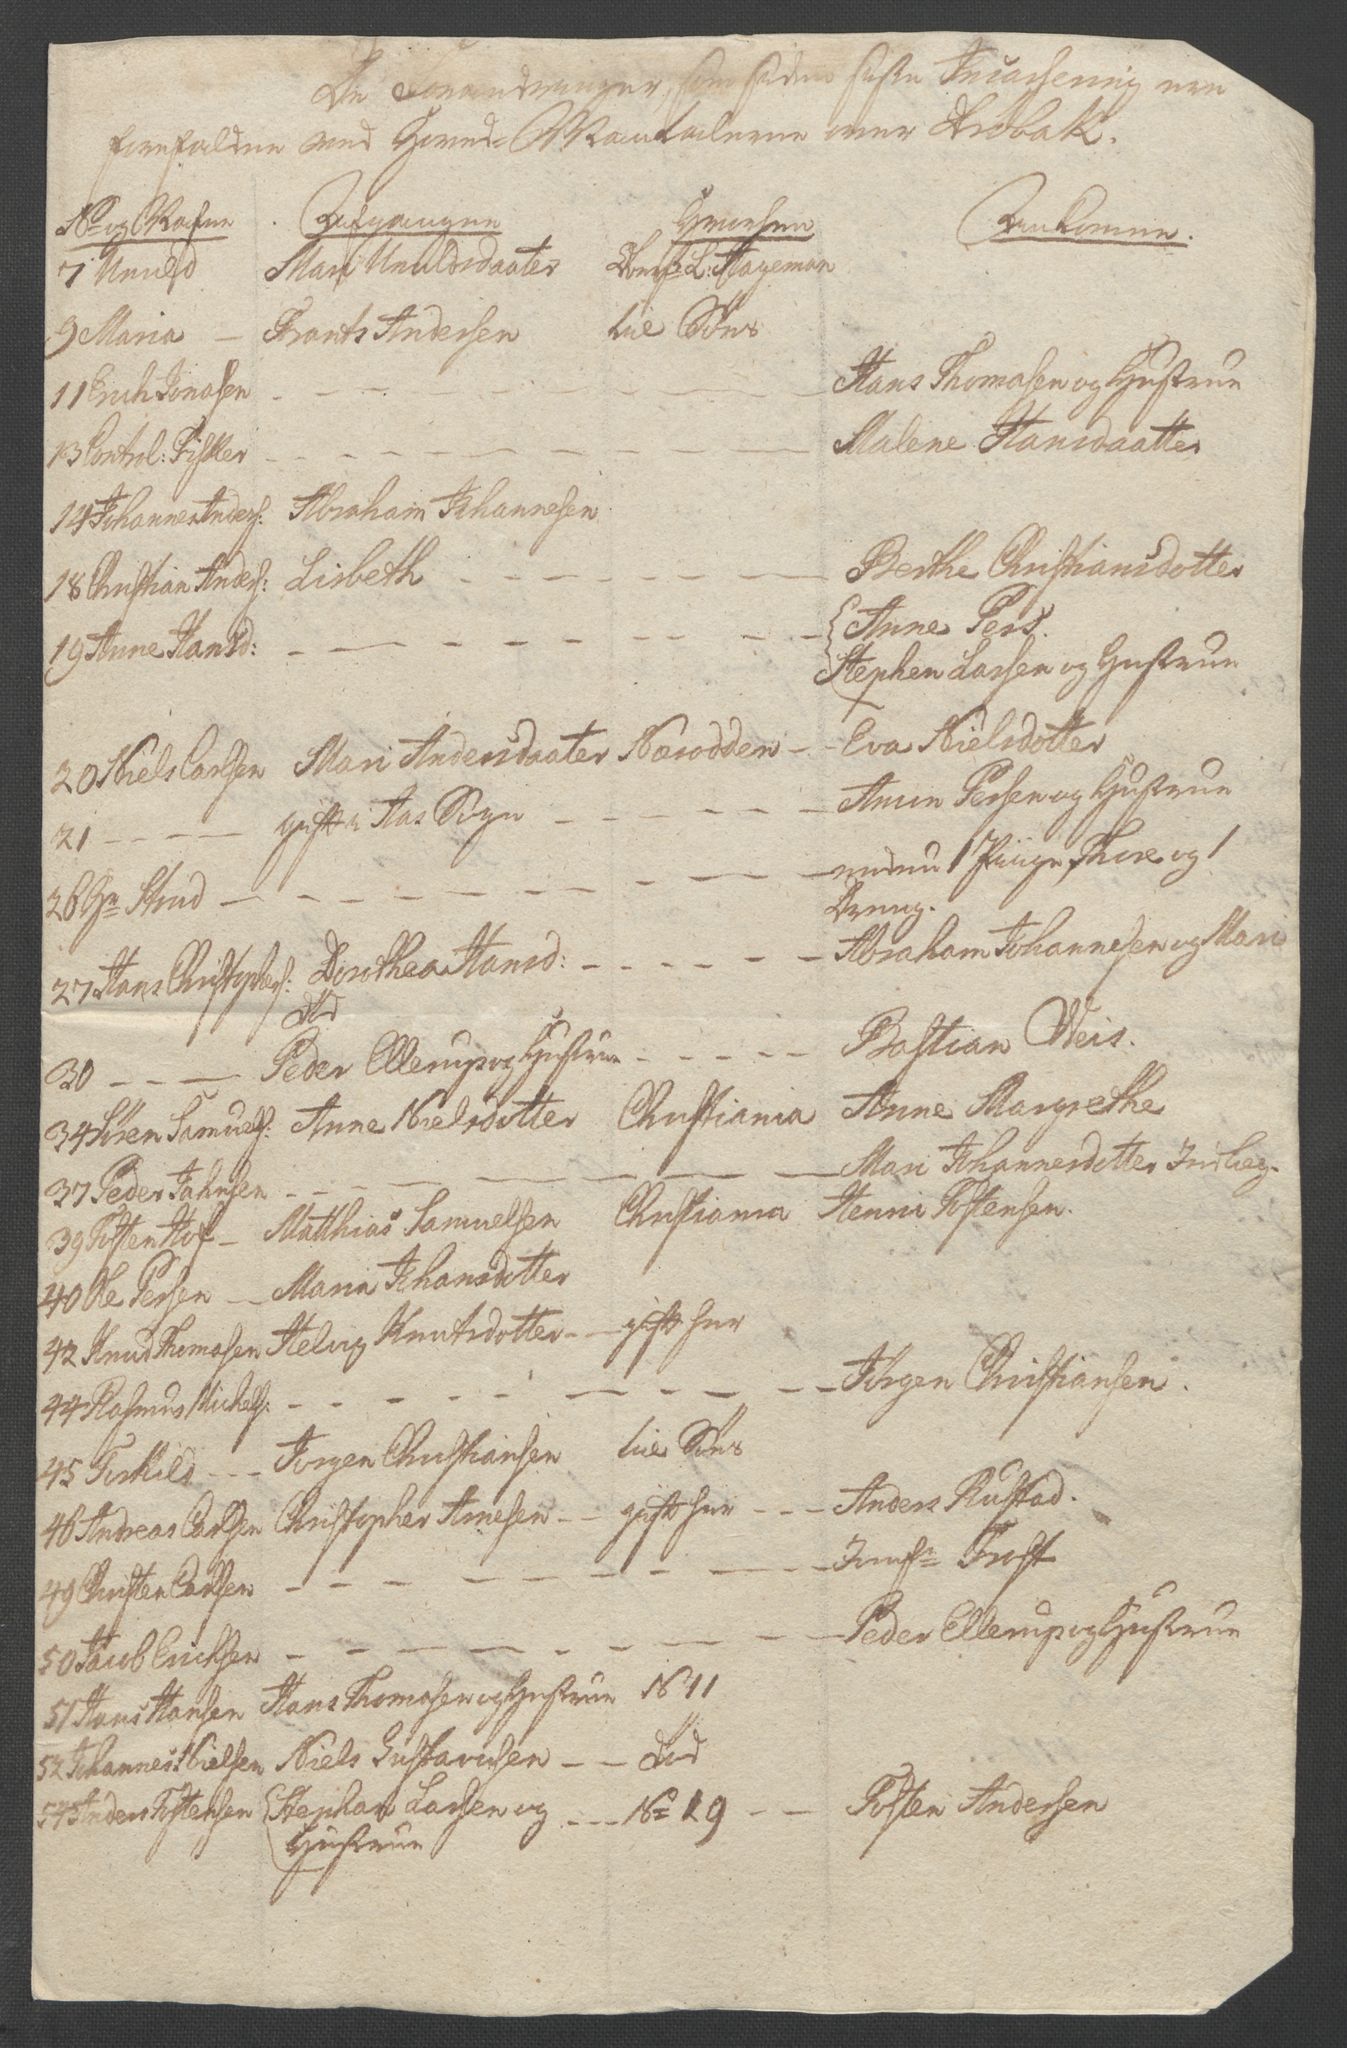 De Forandringer, som siden siste Incassering ere
forefaldne ved Hoved-Mantalerne over Drøbak.
No og Nafne Aufgangne Hvorhen Ankomne.
7 Knuld Mari Knuldsdaater Hageman
9 Maria - Frants Andersen til Søns
11 Erich Jonasen - - - Hans Thomasen og Hustrue
13 Control: Fisker - - - Malene Hansdaatter
14 Johannes Anders: Abraham Johannesen
18 Christian Anders: Lisbeth - - - Berthe Christiansdotter
19 Anne Hansd: - - - { Anne Pers.
Stephen Larsen og Hustrue
20 Niels Carlsen Mari Andersdaater Næsodden - - Eva Nielsdotter
21 - - - gift i Aas Sogn - - - Amun Persen og Hustrue
26 Hr Stud - - - 1 Piige Thore og 1
Dreng.
27 Hans Christophers: Dorothea Hansd: - - - Abraham Johannesen og Mari
død
30 - - - Peder Ellerup og Hustrue - - - Bastian Weis.
34 Sören Samuels: Anne Nielsdotter Christiania Anne Margrethe
37 Peder Jahnsen - - - Mari Johannesdotter
39 Tosten Hof - Matthias Samuelsen Christiania Henric Tostensen.
40 Ole Persen - Maria Johansdotter
42 Knud Thomasen Helvig Knutsdotter - - gift her
44 Rasmus Michels: - - - Jörgen Christiansen.
45 Torkild - - - Jorgen Christiansen til Søns
46 Andreas Carlsen Christopher Arnesen - - gift her - - - Anders Rustad.
49 Christen Carlsen - - - Jomfr Trost
50 Jacob Erichsen - - - Peder Ellerup og Hustrue
51 Hans Hansen Hans Thomasen og Hustrue No 11
52 Johannes Nielsen Niels Gustavesen - - Död
54 Anders Tostensen { Stephan Larsen og - - - No 19 - - Tosten Andersen
Hustrue